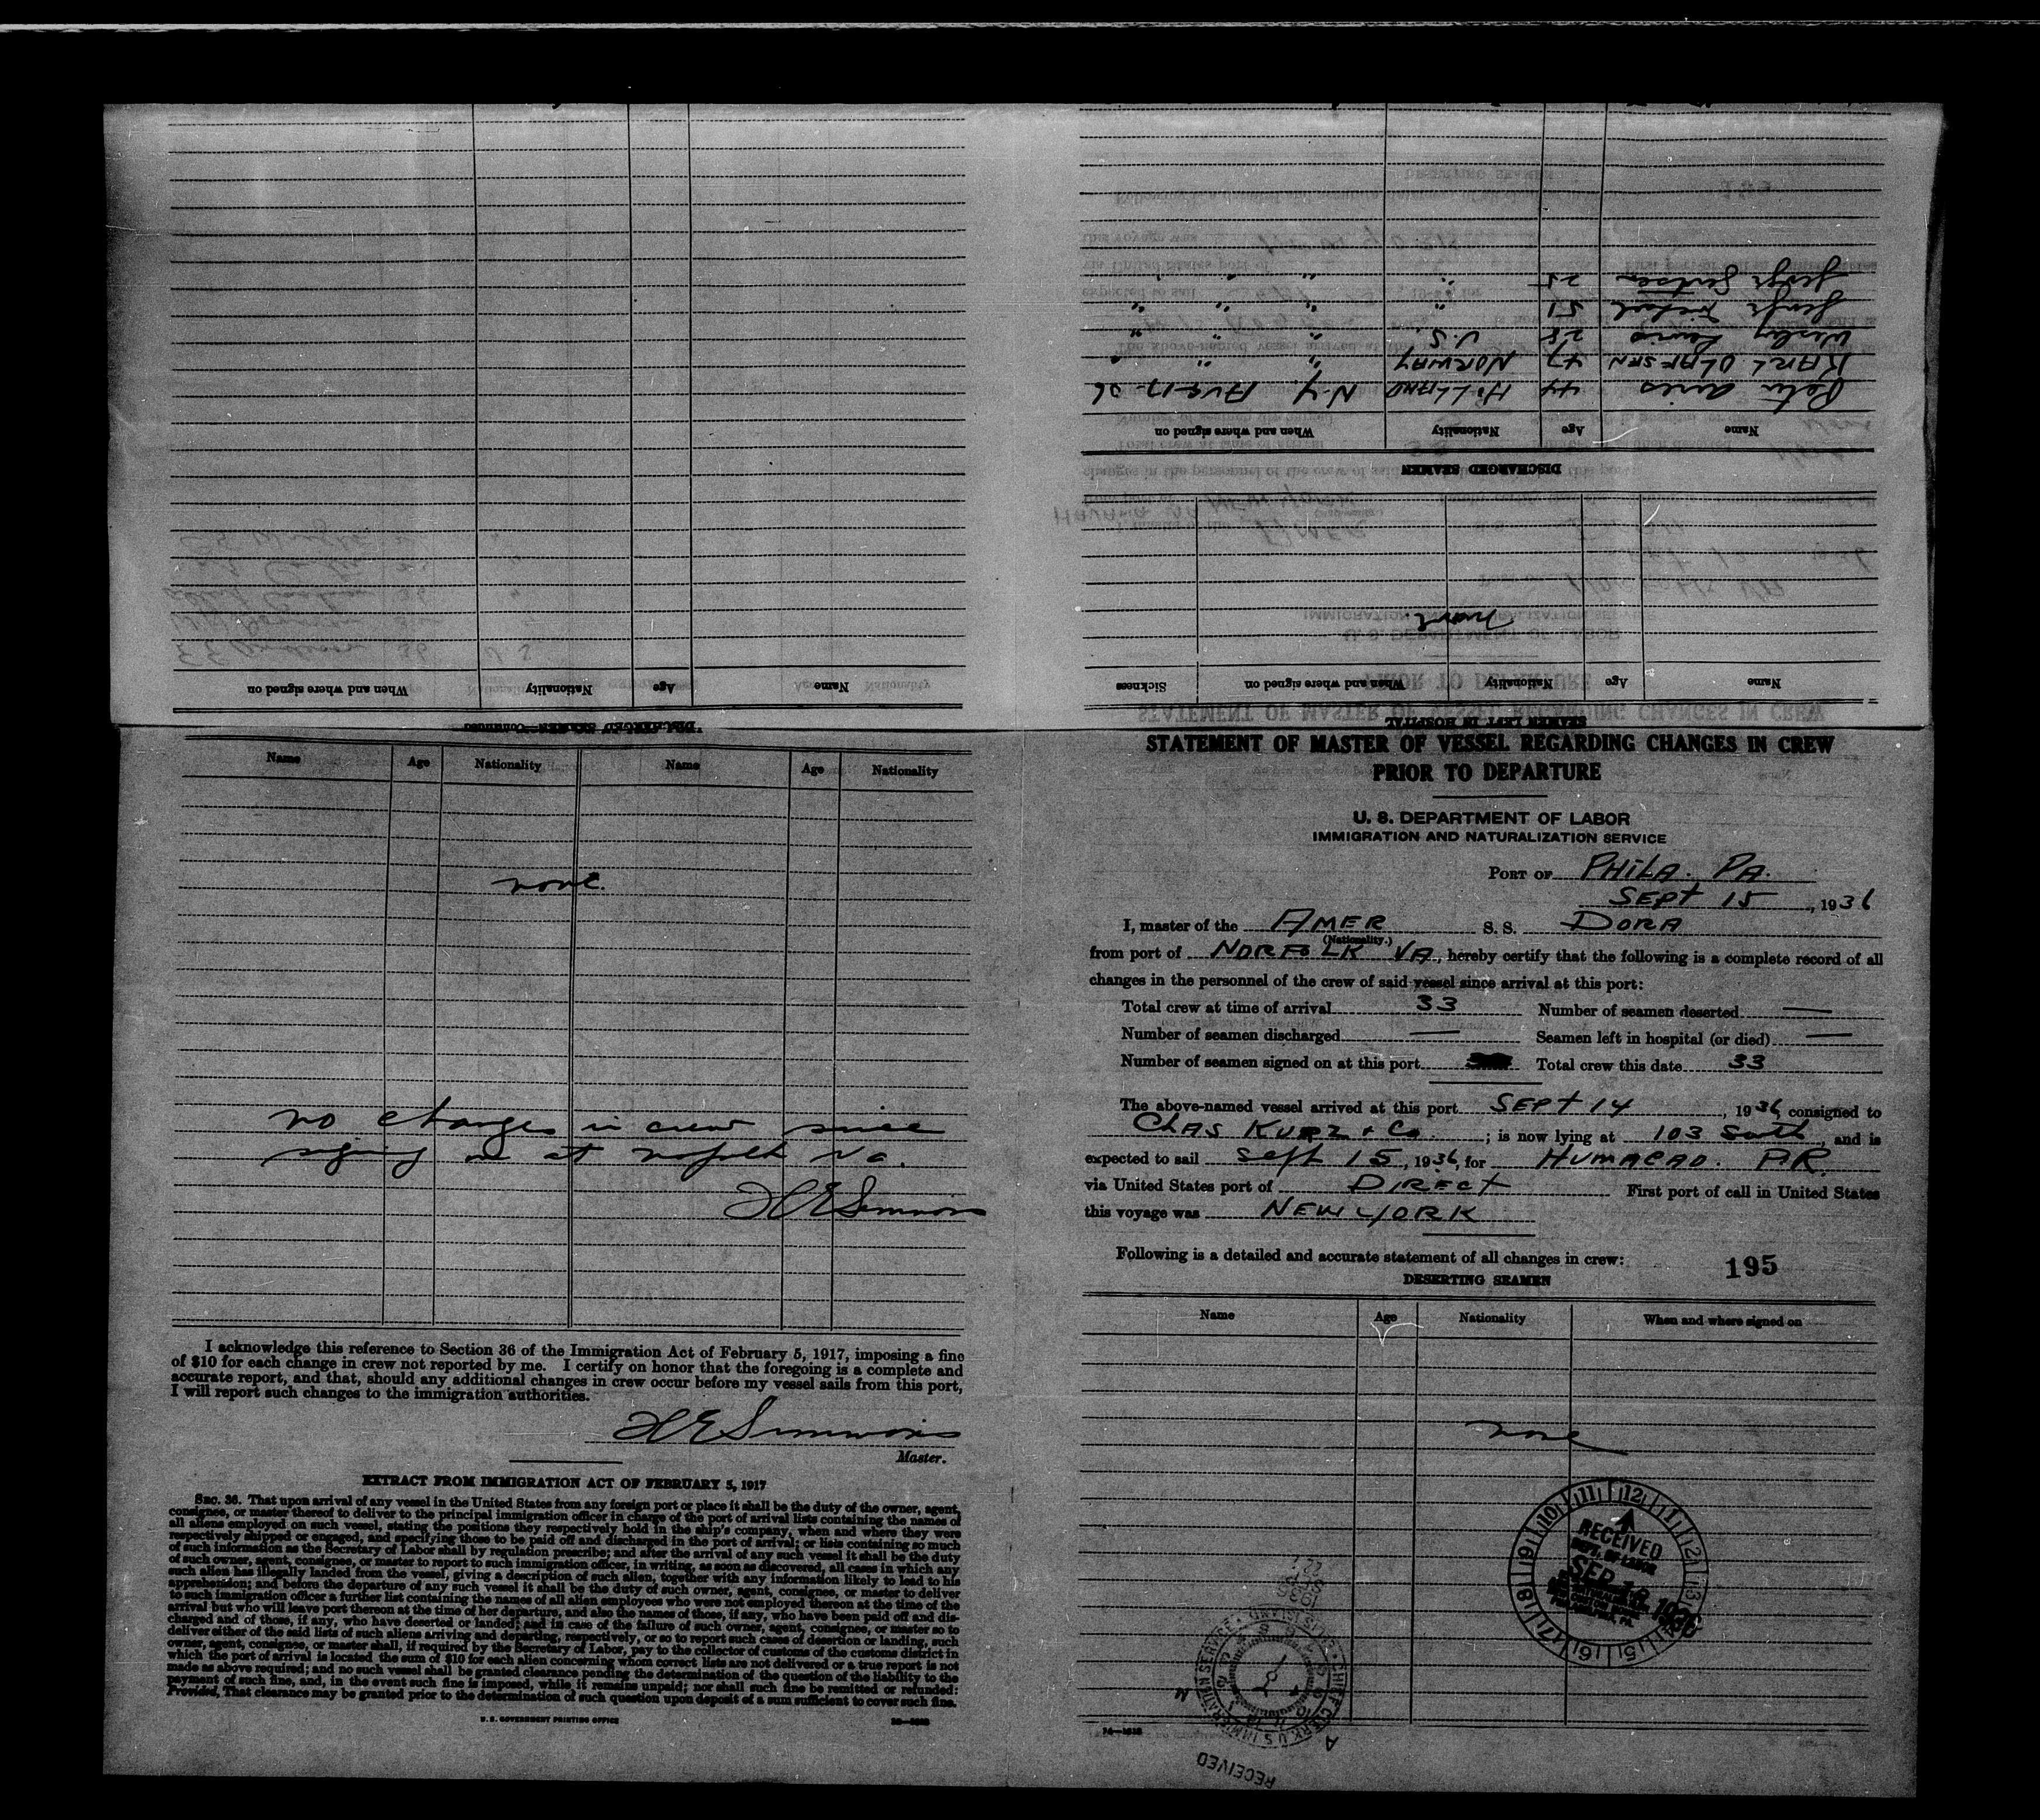 STATEMENT OF MASTER OF VESSEL REGARDING CHANGES IN CREW
PRIOR TO DEPARTURE
U. S. DEPARTMENT OF LABOR
IMMIGRATION AND NATURALIZATION SERVICE
PORT OF PHILA. PA.
SEPT 15, 1936
I, master of the AMER S. S. DORA
(Nationality.)
from port of NORFOLK VA, hereby certify that the following is a complete record of all
changes in the personnel of the crew of said vessel since arrival at this port:
Total crew at time of arrival 33 Number of seamen deserted —
Number of seamen discharged — Seamen left in hospital (or died) —
Number of seamen signed on at this port Total crew this date 33
The above-named vessel arrived at this port SEPT 14, 1936, consigned to
CHAS KURZ & Co. ; is now lying at 103 South, and is
expected to sail Sept 15, 1936, for HUMACAO. P.R.
via United States port of DIRECT First port of call in United States
this voyage was NEW YORK
Following is a detailed and accurate statement of all changes in crew:
195
DESERTING SEAMEN
Name Age Nationality When and where signed on
none
RECEIVED
DEPT. OF LABOR
SEP 18 1936
14—1638
RECEIVED
CHIEF CLERK U S IMMIGRATION SERVICE
SEAMEN LEFT IN HOSPITAL
Name Age Nationality When and where signed on Sickness
none.
DISCHARGED SEAMEN
Name Age Nationality When and where signed on
Peter Aries 44 HOLLAND N.Y. AUG-17-36
KARL OLAFSEN 47 NORWAY " " "
Wesley Lewis 28 U.S. " " "
George 51 " " " "
George 25 " " " "
DISCHARGED SEAMEN—Continued
Name Age Nationality When and where signed on
Name Age Nationality Name Age Nationality
none.
no changes in crew since
signing on at Norfolk Va.
H E Simmons
I acknowledge this reference to Section 36 of the Immigration Act of February 5, 1917, imposing a fine
of $10 for each change in crew not reported by me. I certify on honor that the foregoing is a complete and
accurate report, and that, should any additional changes in crew occur before my vessel sails from this port,
I will report such changes to the immigration authorities.
H E Simmons
Master.
EXTRACT FROM IMMIGRATION ACT OF FEBRUARY 5, 1917
SEC. 36. That upon arrival of any vessel in the United States from any foreign port or place it shall be the duty of the owner, agent,
consignee, or master thereof to deliver to the principal immigration officer in charge of the port of arrival lists containing the names of
all aliens employed on such vessel, stating the positions they respectively hold in the ship's company, when and where they were
respectively shipped or engaged, and specifying those to be paid off and discharged in the port of arrival; or lists containing so much
of such information as the Secretary of Labor shall by regulation prescribe; and after the arrival of any such vessel it shall be the duty
of such owner, agent, consignee, or master to report to such immigration officer, in writing, as soon as discovered, all cases in which any
such alien has illegally landed from the vessel, giving a description of such alien, together with any information likely to lead to his
apprehension; and before the departure of any such vessel it shall be the duty of such owner, agent, consignee, or master to deliver
to such immigration officer a further list containing the names of all alien employees who were not employed thereon at the time of the
arrival but who will leave port thereon at the time of her departure, and also the names of those, if any, who have been paid off and dis-
charged and of those, if any, who have deserted or landed; and in case of the failure of such owner, agent, consignee, or master so to
deliver either of the said lists of such aliens arriving and departing, respectively, or so to report such cases of desertion or landing, such
owner, agent, consignee, or master shall, if required by the Secretary of Labor, pay to the collector of customs of the customs district in
which the port of arrival is located the sum of $10 for each alien concerning whom correct lists are not delivered or a true report is not
made as above required; and no such vessel shall be granted clearance pending the determination of the question of the liability to the
payment of such fine, and, in the event such fine is imposed, while it remains unpaid; nor shall such fine be remitted or refunded:
Provided, That clearance may be granted prior to the determination of such question upon deposit of a sum sufficient to cover such fine.
U. S. GOVERNMENT PRINTING OFFICE